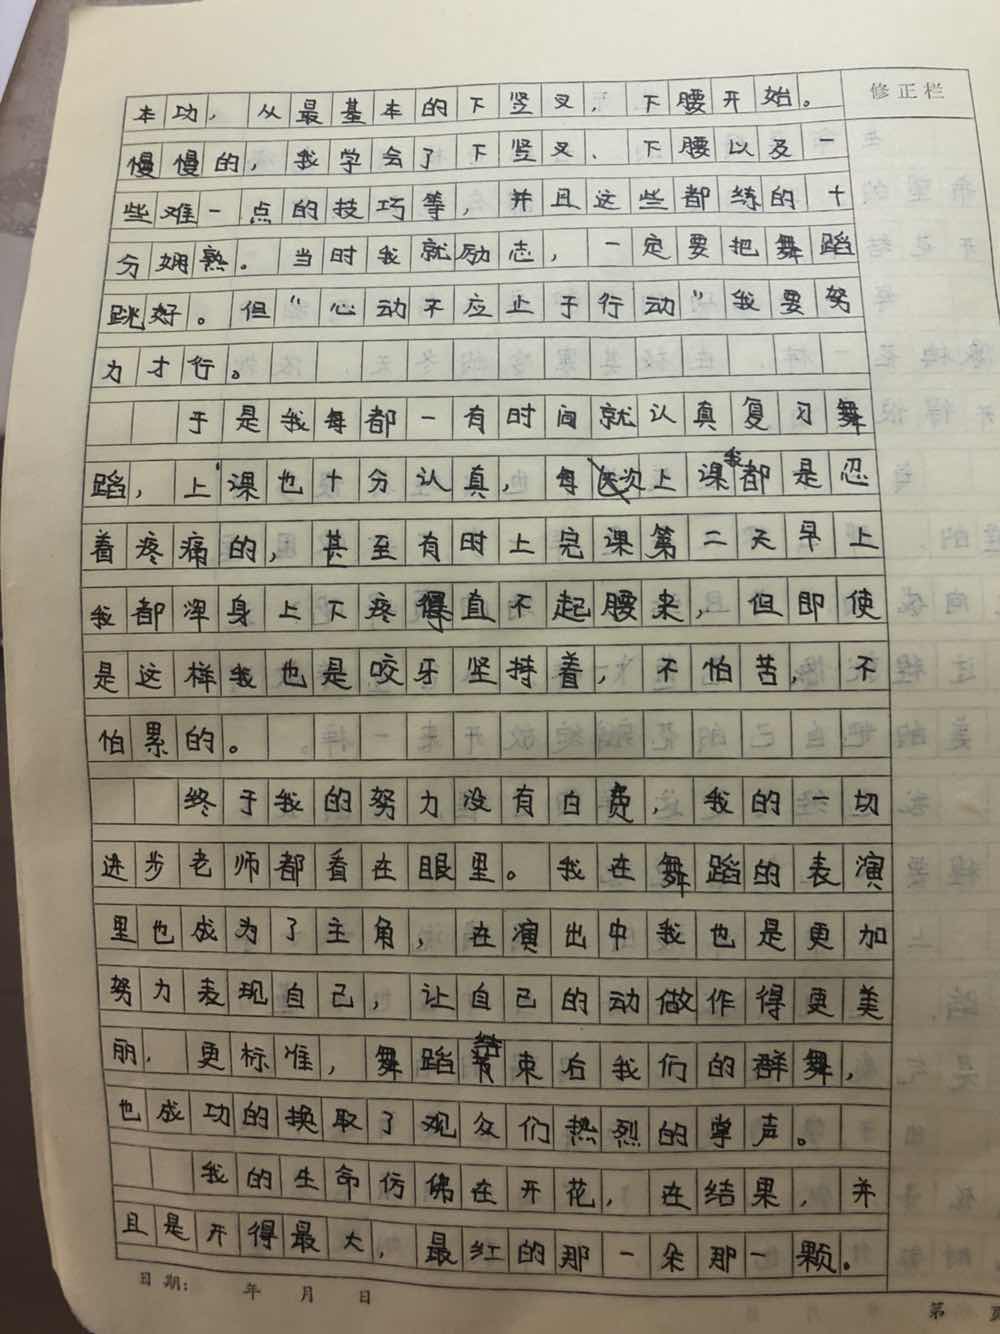 修正栏
本功，从最基本的下竖叉、下腰开始。
慢慢的，我学会了下竖叉、下腰以及一
些难一点的技巧等，并且这些都练的十
分娴熟。当时我就励志，一定要把舞蹈
跳好。但“心动不应止于行动”我要努
力才行。
于是我每都一有时间就认真复习舞
蹈，上课也十分认真，每次上课我都是忍
着疼痛的，甚至有时上完课第二天早上
我都浑身上下疼得直不起腰来，但即使
是这样我也是咬牙坚持着，不怕苦，不
怕累的。
终于我的努力没有白费，我的一切
进步老师都看在眼里。我在舞蹈的表演
里也成为了主角，在演出中我也是更加
努力表现自己，让自己的动做作得更美
丽，更标准，舞蹈结束后我们的群舞，
也成功的换取了观众们热烈的掌声。
我的生命仿佛在开花，在结果，并
且是开得最大，最红的那一朵那一颗。
日期： 年 月 日
第 页